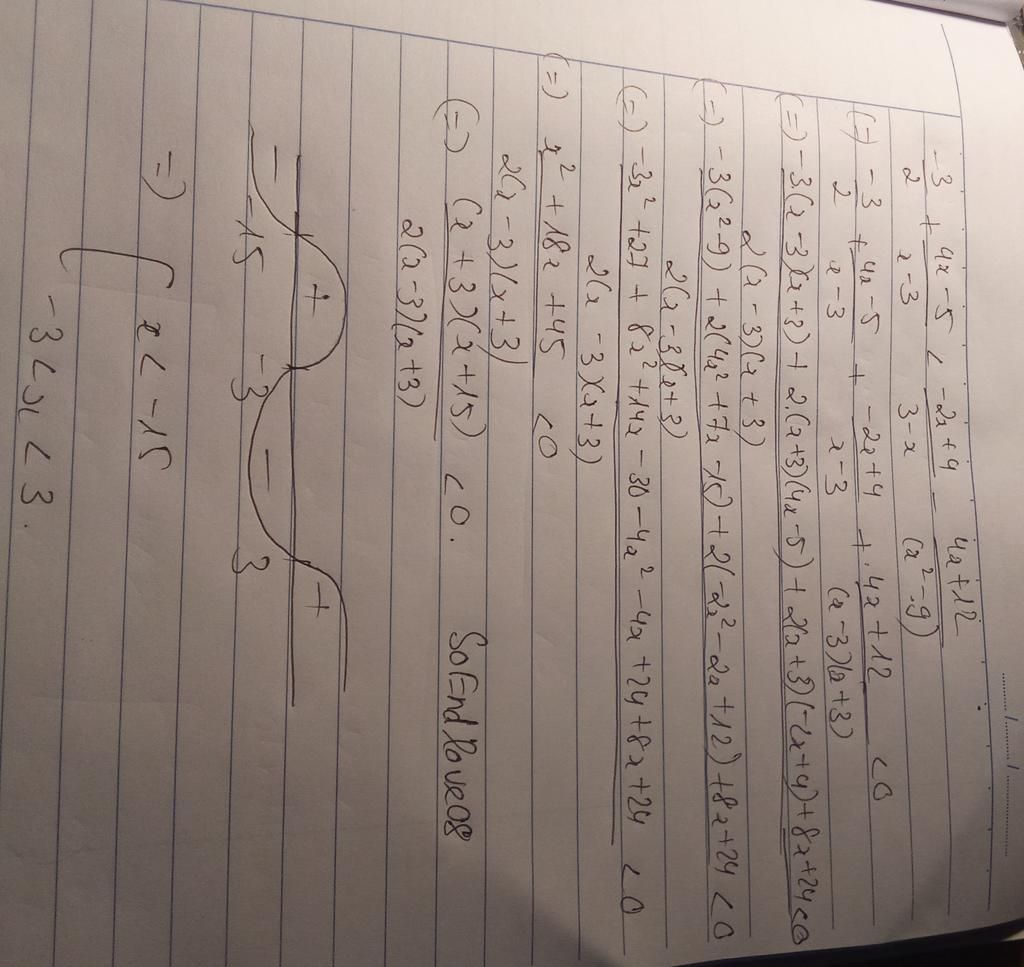 -3/2 + (4x-5)/(x-3) < (-2x+4)/(3-x) - (4x+12)/(x²-9)
(=) -3/2 + (4x-5)/(x-3) + (-2x+4)/(x-3) + (4x+12)/((x-3)(x+3)) <0
(=) (-3(x-3)(x+3) + 2.(x+3)(4x-5) + 2(x+3)(-2x+4) + 8x+24)/(2(x-3)(x+3)) <0
(=) (-3(x²-9) + 2(4x²+7x-15) + 2(-2x²-2x+12) + 8x+24)/(2(x-3)(x+3)) <0
(=) (-3x²+27 + 8x²+14x-30-4x²-4x+24+8x+24)/(2(x-3)(x+3)) <0
(=) (x²+18x+45)/(2(x-3)(x+3)) <0
(=) ((x+3)(x+15))/(2(x-3)(x+3)) <0. SoEndlove08
- + - +
-15 -3 3
=) { x < -15
-3 < x < 3.